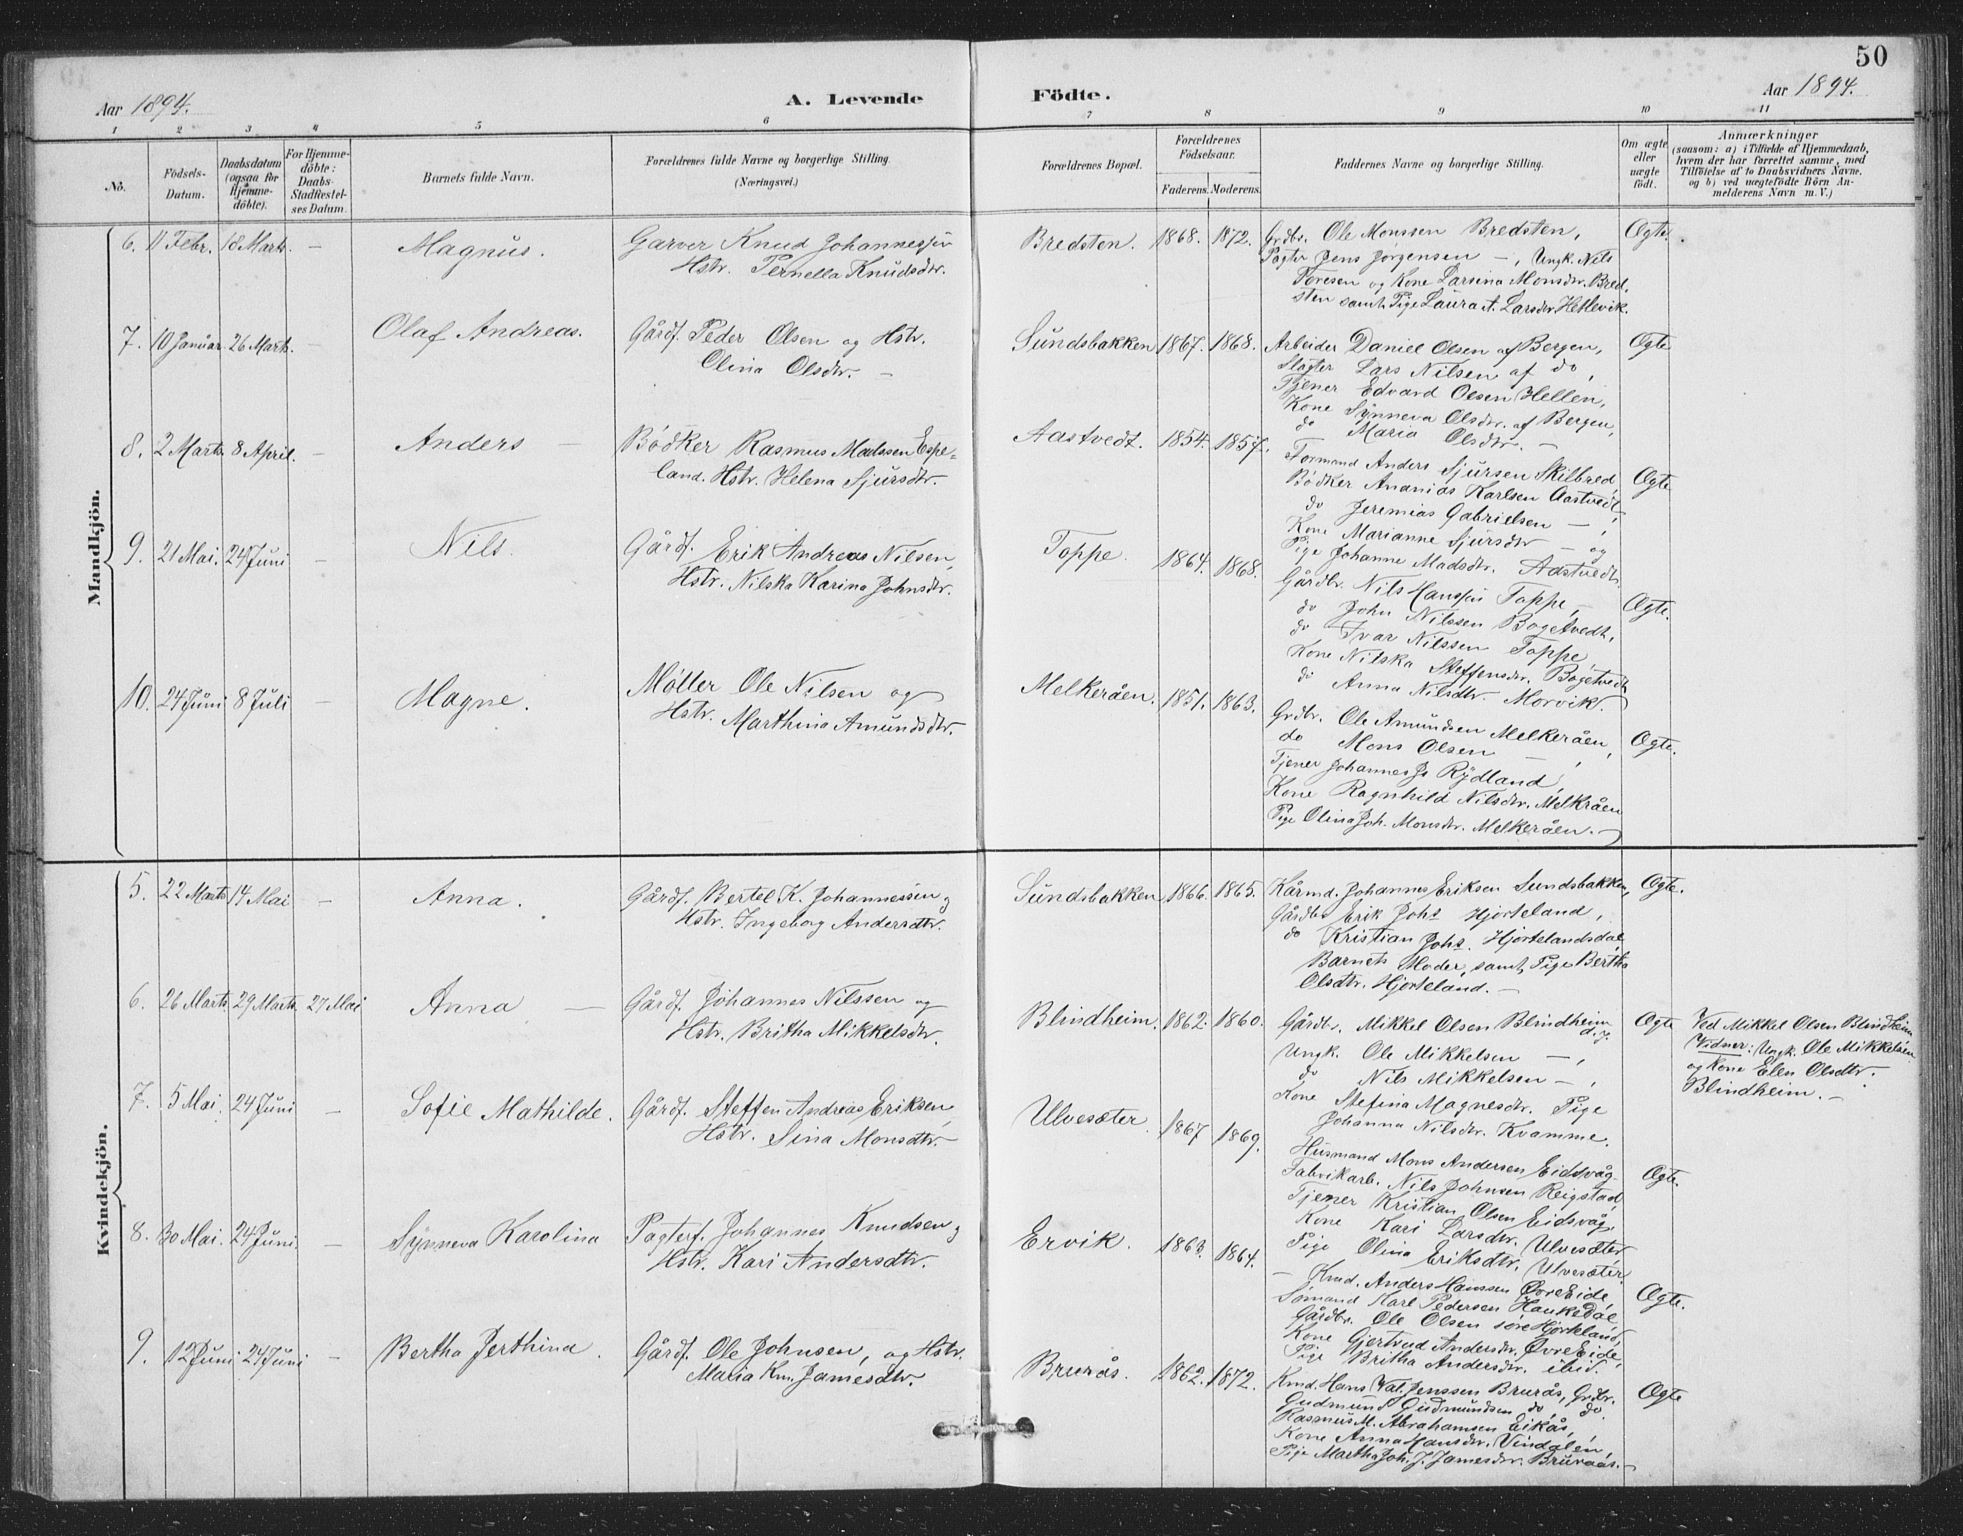 50
Aar 1894.
A. Levende
Födte.
Aar 1894.
1 2 3 4 5 6 7 8 9 10 11
No.
Födsels-
Datum.
Daabsdatum
(ogsaa for
Hjemme-
döbte).
For Hjemme-
döbte:
Daabs-
Stadfæstel-
ses Datum.
Barnets fulde Navn.
Forældrenes fulde Navne og borgerlige Stilling.
(Næringsvei.)
Forældrenes Bopæl.
Forældrenes
Födselsaar.
Faderens. Moderens.
Faddernes Navne og borgerlige Stilling.
Om ægte
eller
uægte
födt.
Anmærkninger
(saasom: a) i Tilfælde af Hjemmedaab,
hvem der har forrettet samme, med
Tilföielse af to Daabsvidners Navne,
og b) ved uægtefödte Börn An-
melderens Navn m. V.)
Mandkjön.
6. 11 Febr. 18 Marts. — Magnus.
Garver Knud Johannessen
Hstr. Pernella Knudsdtr.
Bredsten. 1868. 1872.
Grdbr. Ole Monssen Bredsten,
Pagter Jens Jørgensen —, Ungk. Nils
Toresen og Kone Larsina Monsdtr. Bred-
sten samt Pige Laura A. Larsdtr. Hetlevik.
Ægte.
7. 10 Januar. 26 Marts. — Olaf Andreas.
Gårdf. Peder Olsen og Hstr.
Olina Olsdtr. —
Sundsbakken 1867. 1868.
Arbeider Daniel Olsen af Bergen,
Slagter Lars Nilsen af do,
Tjener Edvard Olsen Hellen,
Kone Synneva Olsdtr. af Bergen,
do Maria Olsdtr. —
Ægte
8. 2 Marts 8 April. — Anders —
Bødker Rasmus Madssen Espe-
land. Hstr. Helena Sjursdtr.
Aastvedt. 1854. 1857.
Formand Anders Sjursen Skilbred,
Bødker Ananias Karlsen Aastvedt,
do Jeremias Gabrielsen —,
Kone Marianne Sjursdtr — og
Pige Johanne Madsdtr. Aastvedt.
Ægte
9. 21 Mai. 24 Juni — Nils.
Gårdf. Erik Andreas Nilsen,
Hstr. Nilska Karina Johnsdtr.
Toppe. 1864. 1868.
Gårdbr. Nils Hanssen Toppe,
do John Nilssen Bogetvedt,
do Ivar Nilssen Toppe
Kone Nilska Steffensdtr. Bogetvedt
do Anna Nilsdtr. Morvik.
Ægte.
10. 24 Juni 8 Juli — Magne.
Møller Ole Nilsen og
Hstr. Marthina Amundsdtr.
Melkeråen. 1851. 1863.
Grdbr. Ole Amundsen Melkeråen,
do Mons Olsen —,
Tjener Johannes Js Rydland,
Kone Ragnhild Nilsdtr. Melkråen
Pige Olina Joh. Monsdtr. Melkeråen. —
Ægte.
Kvindekjön.
5. 22 Marts 14 Mai — Anna.
Gårdf. Bertel K. Johannessen og
Hstr. Ingeborg Andersdtr.
Sundsbakken 1866. 1865.
Kårmd. Johannes Eriksen Sundsbakken,
Gårdbr Erik Johs Hjorteland,
do Kristian Johs. Hjortelandsdal,
Barnets Moder, samt Pige Bertha
Olsdtr. Hjorteland. —
Ægte.
6. 26 Marts. 29 Marts. 27 Mai Anna —
Gårdf. Johannes Nilssen og
Hstr. Britha Mikkelsdtr.
Blindheim. 1862. 1860.
Gårdbr. Mikkel Olsen Blindheim
d.y.
Ungk. Ole Mikkelsen —,
do Nils Mikkelsen —,
Kone Stefina Magnesdtr. Pige
Johanna Nilsdtr. Kvamme.
Ægte
Ved Mikkel Olsen Blindheim
Vidner: Ungk. Ole Mikkelsen
og Kone Elen Olsdtr.
Blindheim. —
7. 5 Mai. 24 Juni — Sofie Mathilde.
Gårdf. Steffen Andreas Eriksen,
Hstr. Sina Monsdtr. —
Ulvesæter. 1867 1869.
Husmand Mons Andersen Eidsvåg
Fabrikarb. Nils Johnsen Reigstad,
Tjener Kristian Olsen Eidsvåg,
Kone Kari Larsdtr. Ulvesæter,
Pige Olina Eriksdtr. Ulvesæter.
Ægte.
8. 30 Mai. 24 Juni. — Synneva Karolina
Pagterf. Johannes Knudsen og
Hstr. Kari Andersdtr.
Ervik. 1863. 1864.
— Kmd. Anders Hanssen Øvre Eide,
Sømand Karl Pedersen Haukedal,
Gårdbr. Ole Olsen søre Hjorteland,
Kone Gjertrud Andersdtr. Øvre Eide,
Pige Britha Andersdtr. ibid.
Ægte.
9. 12 Juni 24 Juni — Bertha Jerthina.
Gårdf. Ole Johnsen, og Hstr.
Maria Kn. Jamesdtr.
Brurås. 1862. 1872.
Kmd. Hans Val. Jenssen Brurås, Grdbr.
Gudmund Gudmundsen do, do.
Rasmus M. Abrahamsen Eikås,
Kone Anna Hansdtr. Vindalen,
Pige Martha Joh. J. Jamesdtr. Bruraas. —
Ægte